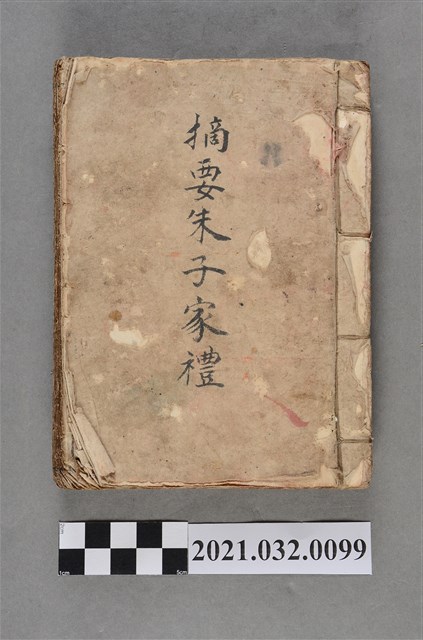 摘要朱子家禮
2021.032.0099
1cm 5cm